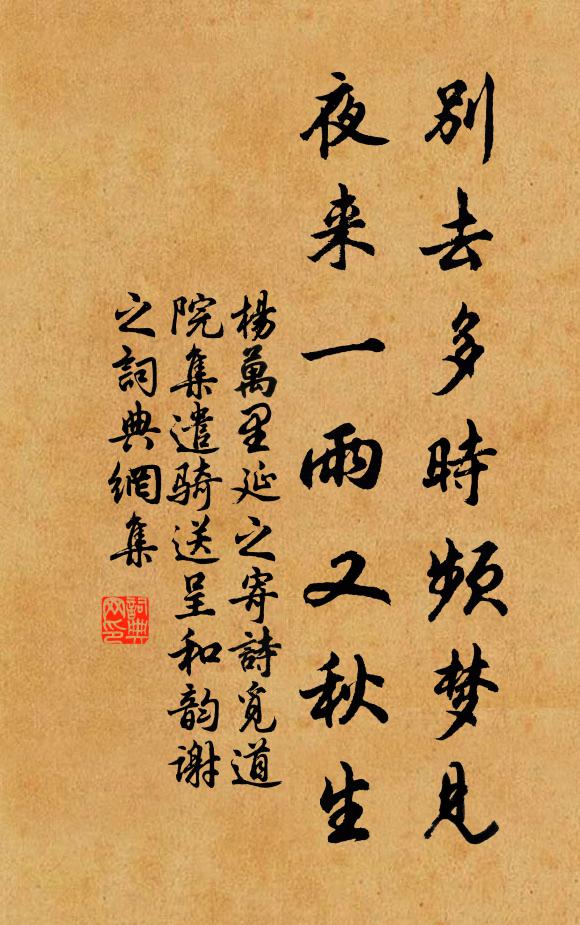 別去多時頻梦見
夜来一雨又秋生
楊萬里延之寄詩覓道
院集遣騎送呈和韵謝
之詞典網集
詞典
网印